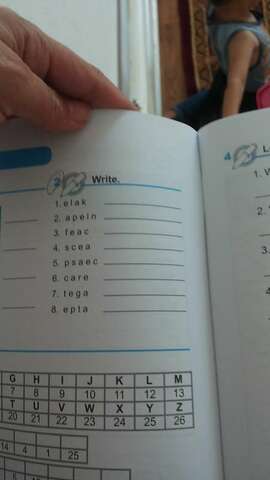 2 Write.
1. elak
2. apeln
3. feac
4. scea
5. psaec
6. care
7. tega
8. epta
G H I J K L M
7 8 9 10 11 12 13
T U V W X Y Z
20 21 22 23 24 25 26
14 4 1 25
4
1. W